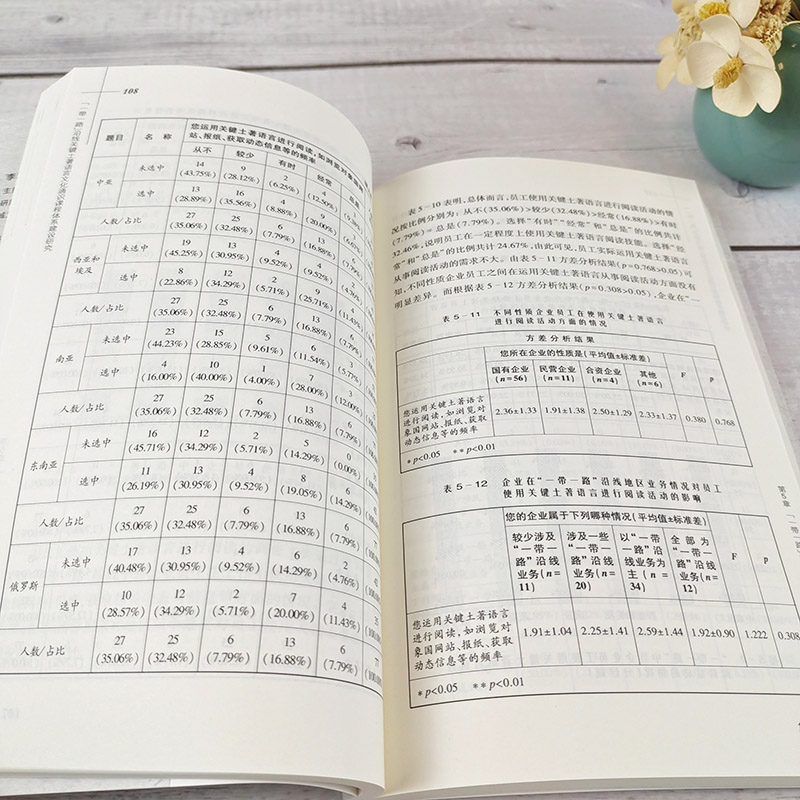 108
「一带一路」沿线关键土著语言文化通识课程体系建设研究
题目 名称 您运用关键土著语言进行阅读,如浏览对象国网
站、报纸、获取动态信息等的频率
从不 较少 有时 经常
中亚 未选中 14 (43.75%) 9 (28.12%) 2 (6.25%) (12.50%)
选中 13 (28.89%) 16 (35.56%) 4 (8.88%) 9 (20.00%)
人数/占比 27 (35.06%) 25 (32.48%) 6 (7.79%) 13 (16.88%)
西亚和埃及 未选中 19 (45.25%) 13 (30.95%) 4 (9.52%) 4 (9.52%)
选中 8 (22.86%) 12 (34.29%) 2 (5.71%) 9 (25.71%) (11.43%)
人数/占比 27 (35.06%) 25 (32.48%) 6 (7.79%) 13 (16.88%)
南亚 未选中 23 (44.23%) 15 (28.85%) 5 (9.61%) 6 (11.54%)
选中 4 (16.00%) 10 (40.00%) 1 (4.00%) 7 (28.00%) (12.00%)
人数/占比 27 (35.06%) 25 (32.48%) 6 (7.79%) 13 (16.88%) (7.79%)
东南亚 未选中 16 (45.71%) 12 (34.29%) 2 (5.71%) 5 (14.29%) 0 (0.00%)
选中 11 (26.19%) 13 (30.95%) 4 (9.52%) 8 (19.05%) 6 (14.29%)
人数/占比 27 (35.06%) 25 (32.48%) 6 (7.79%) 13 (16.88%) 6 (7.79%)
俄罗斯 未选中 17 (40.48%) 13 (30.95%) 4 (9.52%) 6 (14.29%) 2 (4.76%)
选中 10 (28.57%) 12 (34.29%) 2 (5.71%) 7 (20.00%) 4 (11.43%)
人数/占比 27 (35.06%) 25 (32.48%) 6 (7.79%) 13 (16.88%) 6 (7.79%)
表5-10表明,总体而言,员工使用关键土著语言进行阅读活动的情
况按比例分别为:从不(35.06%)>较少(32.48%)>经常(16.88%)>有时
(7.79%)=总是(7.79%)。选择"有时""经常"和"总是"的比例共计
32.46%,说明员工在一定程度上使用关键土著语言阅读技能。选择"经
常"和"总是"的比例共计24.67%,由此可见,员工实际运用关键土著语言
从事阅读活动的需求不大。由表5-11方差分析结果(p=0.768>0.05)可
知,不同性质企业员工之间在运用关键土著语言从事阅读活动方面没有
明显差异。而根据表5-12方差分析结果(p=0.308>0.05),企业在"一
表5-11 不同性质企业员工在使用关键土著语言
进行阅读活动方面的情况
方差分析结果
您所在企业的性质是(平均值±标准差) F p
国有企业(n=56) 民营企业(n=11) 合资企业(n=4) 其他(n=6)
您运用关键土著语言进行阅读,如浏览对象国网站、报纸、获取动态信息等的频率 2.36±1.33 1.91±1.38 2.50±1.29 2.33±1.37 0.380 0.768
*p<0.05 **p<0.01
表5-12 企业在"一带一路"沿线地区业务情况对员工
使用关键土著语言进行阅读活动的影响
您的企业属于下列哪种情况(平均值±标准差) F p
较少涉及"一带一路"沿线业务(n=11) 涉及一些"一带一路"沿线业务(n=20) 以"一带一路"沿线业务为主(n=34) 全部为"一带一路"沿线业务(n=12)
您运用关键土著语言进行阅读,如浏览对象国网站、报纸、获取动态信息等的频率 1.91±1.04 2.25±1.41 2.59±1.44 1.92±0.90 1.222 0.308
*p<0.05 **p<0.01
第5章